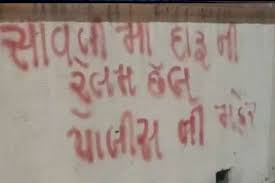 સાવલી મા દારૂ ની
રેલમ છેલ
પોલીસ ની મહેર